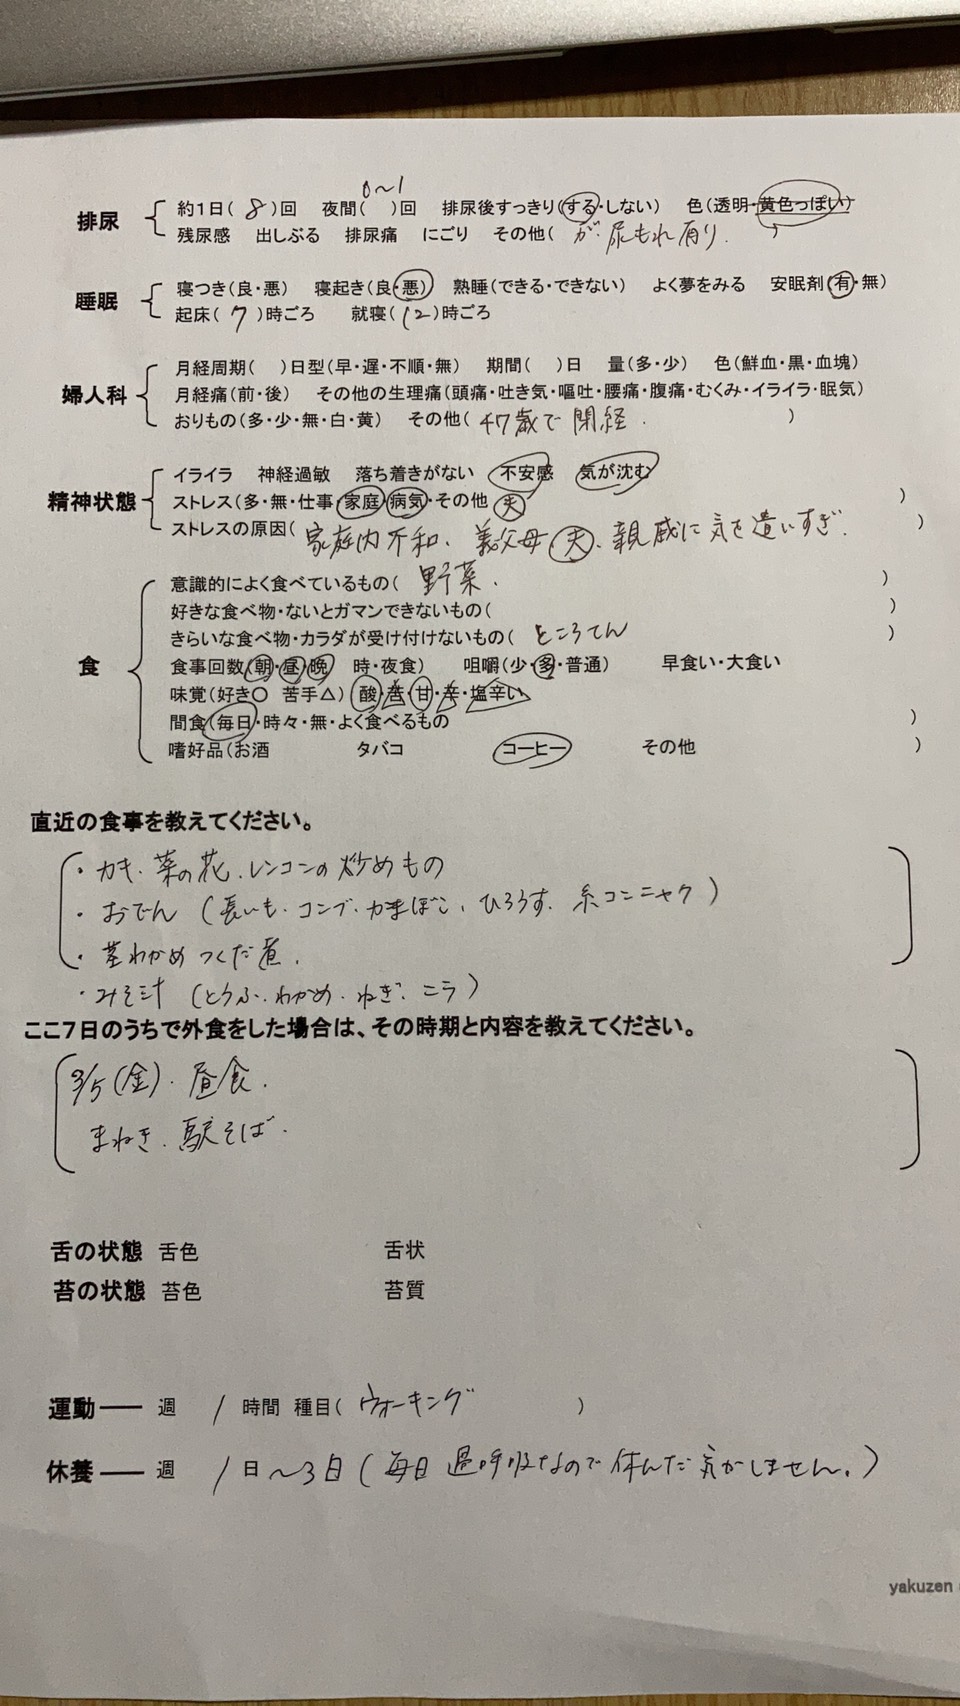 排尿 約1日( 8 )回 夜間( 0〜1 )回 排尿後すっきり(する・しない) 色(透明・黄色っぽい)
残尿感 出しぶる 排尿痛 にごり その他( が尿もれ有り. )
睡眠 寝つき(良・悪) 寝起き(良・悪) 熟睡(できる・できない) よく夢をみる 安眠剤(有・無)
起床( 7 )時ごろ 就寝( 12 )時ごろ
婦人科 月経周期( )日型(早・遅・不順・無) 期間( )日 量(多・少) 色(鮮血・黒・血塊)
月経痛(前・後) その他の生理痛(頭痛・吐き気・嘔吐・腰痛・腹痛・むくみ・イライラ・眠気)
おりもの(多・少・無・白・黄) その他( 47歳で閉経. )
精神状態 イライラ 神経過敏 落ち着きがない 不安感 気が沈む
ストレス(多・無・仕事・家庭・病気・その他 夫 )
ストレスの原因( 家庭内不和、義父母 夫、親戚に気を遣いすぎ. )
食 意識的によく食べているもの( 野菜. )
好きな食べ物・ないとガマンできないもの( )
きらいな食べ物・カラダが受け付けないもの( ところてん )
食事回数(朝・昼・晩 時・夜食) 咀嚼(少・多・普通) 早食い・大食い
味覚(好き○ 苦手△)(酸・苦・甘・辛・塩辛い
間食(毎日・時々・無・よく食べるもの )
嗜好品(お酒 タバコ コーヒー その他 )
直近の食事を教えてください。
・カキ、菜の花、レンコンの炒めもの
・おでん (長いも、コンブ、かまぼこ、ひろうす、糸コンニャク)
・茎わかめつくだ煮.
・みそ汁 (とうふ、わかめ、ねぎ、ニラ)
ここ7日のうちで外食をした場合は、その時期と内容を教えてください。
3/5(金)、昼食.
まねき、駅そば.
舌の状態 舌色 舌状
苔の状態 苔色 苔質
運動―― 週 1 時間 種目( ウォーキング )
休養―― 週 1 日〜3日(毎日過呼吸なので休んだ気がしません。)
yakuzen